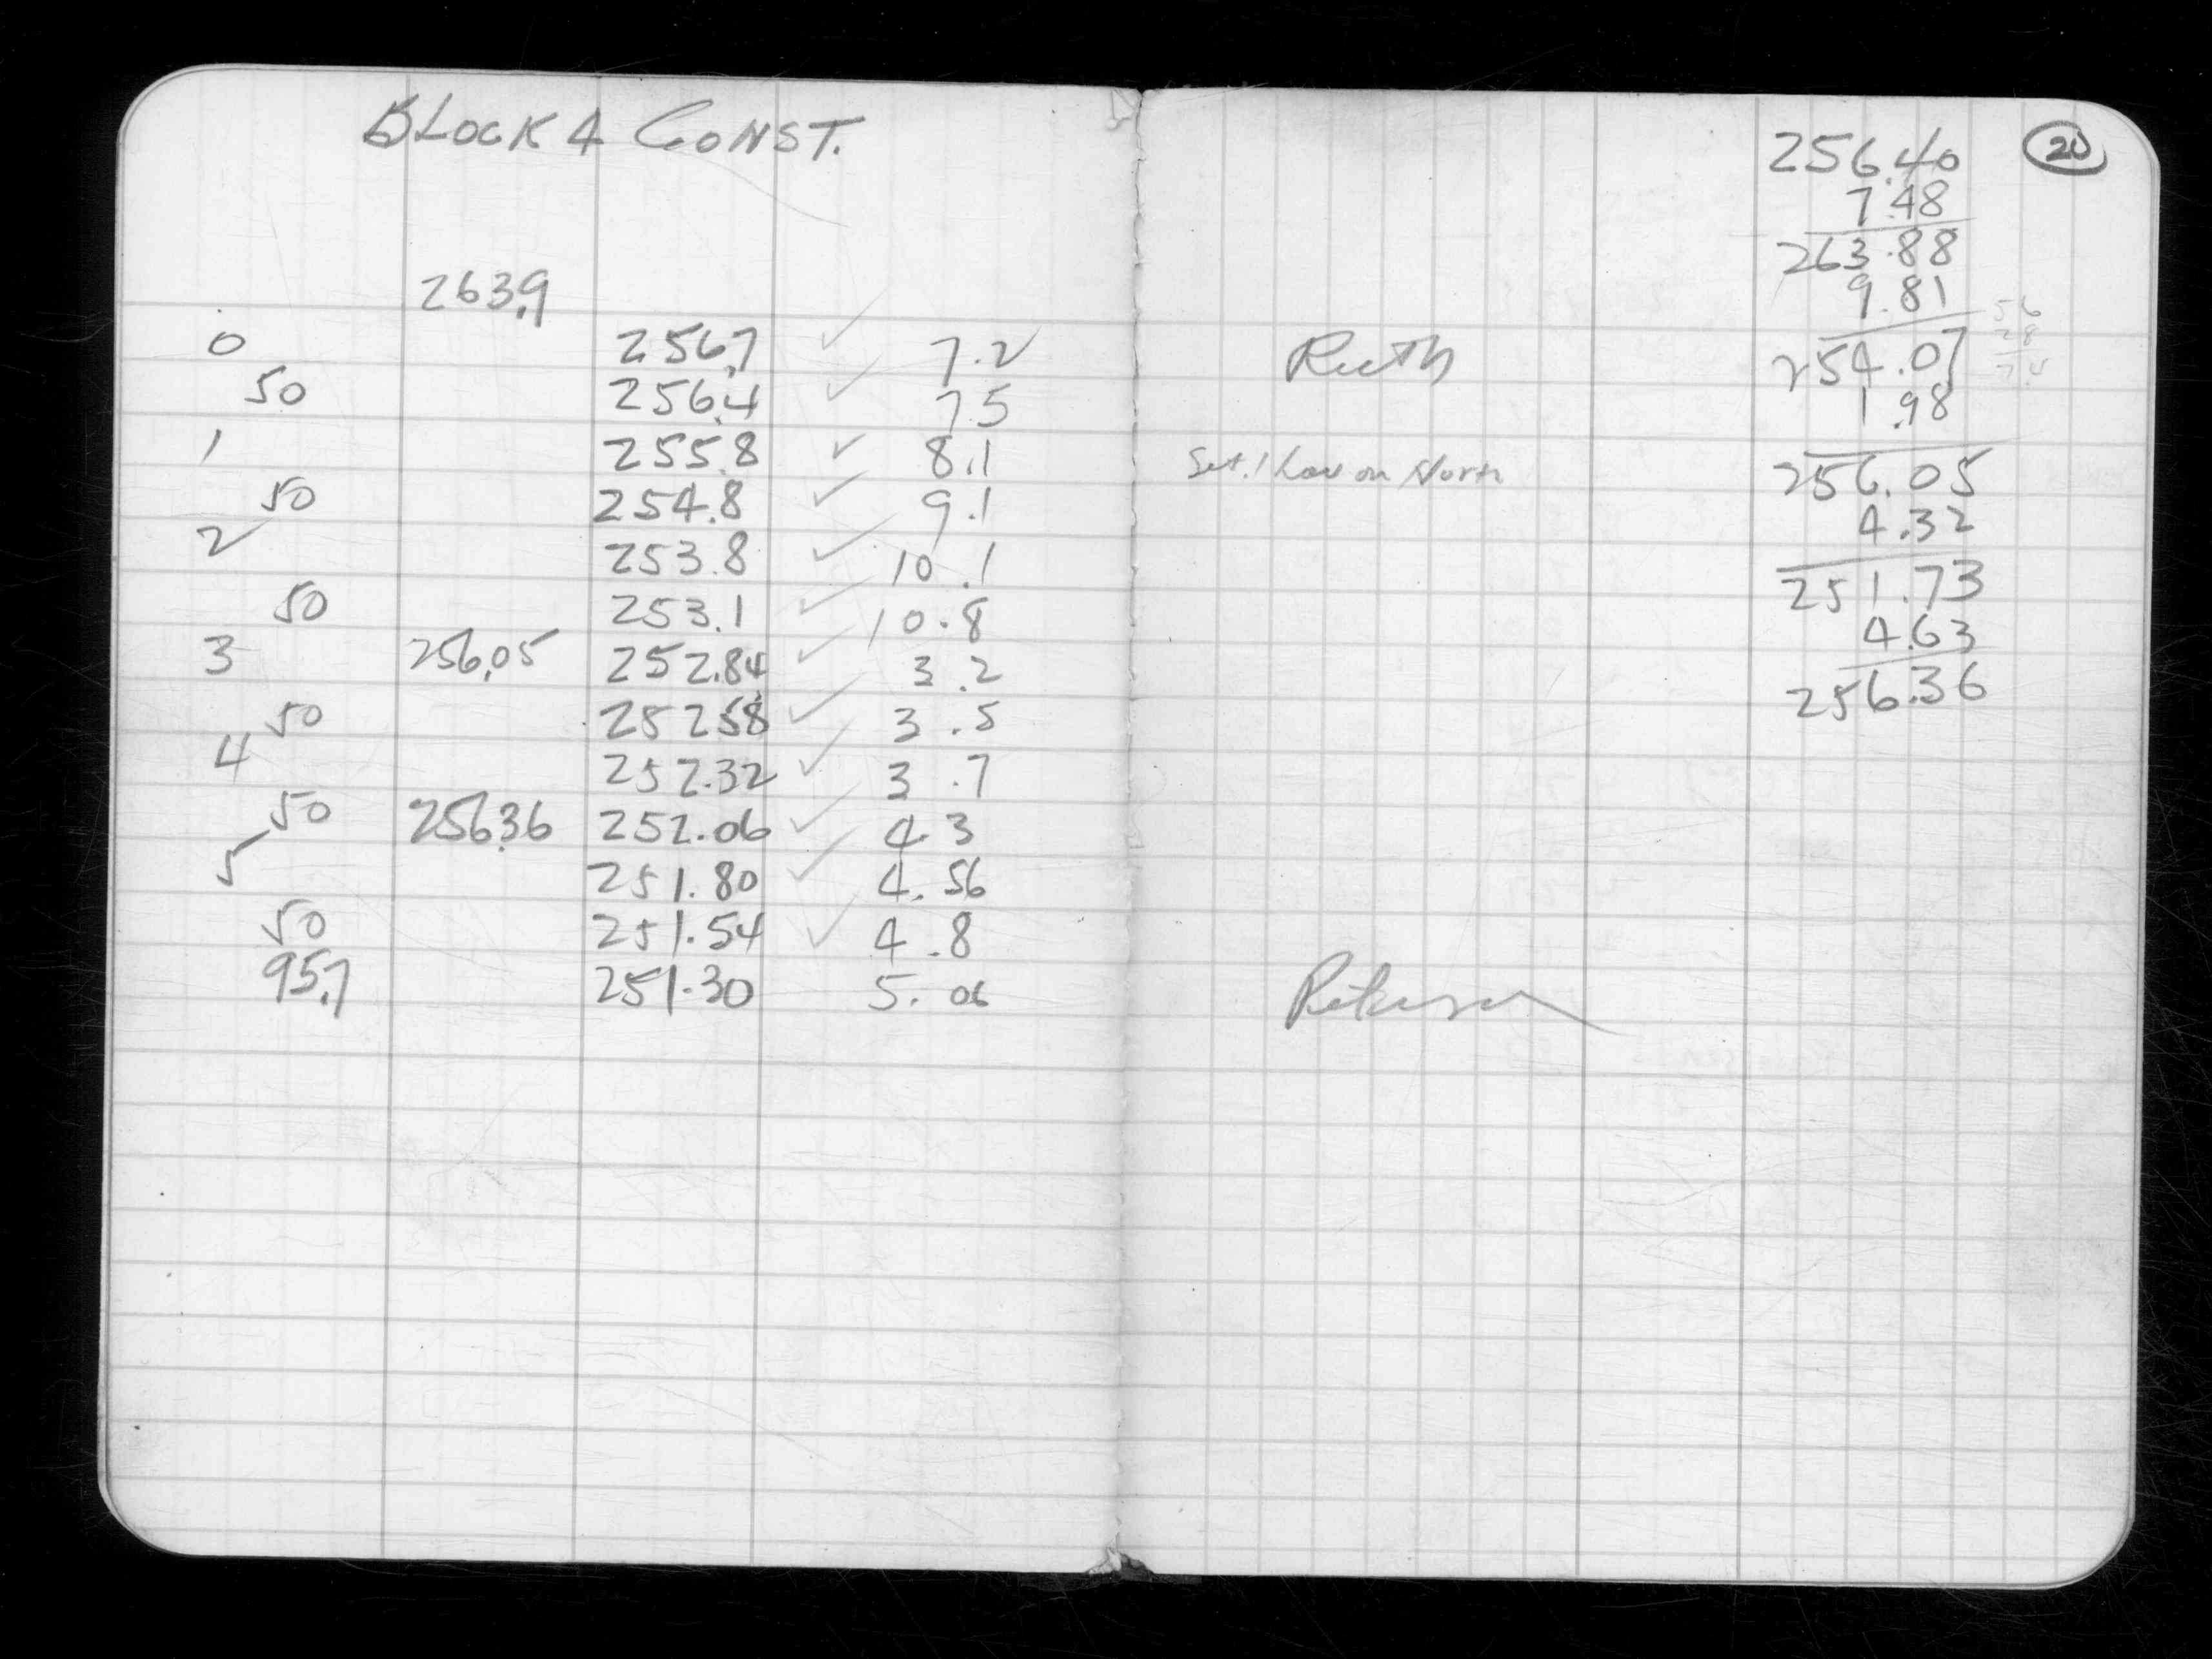 BLOCK 4 CONST.
263.9
0 256.7 ✓ 7.2
50 256.4 ✓ 7.5
1 255.8 ✓ 8.1
50 254.8 ✓ 9.1
2 253.8 ✓ 10.1
50 253.1 ✓ 10.8
3 256.05 252.84 ✓ 3.2
50 252.58 ✓ 3.5
4 252.32 ✓ 3.7
50 256.36 252.06 ✓ 4.3
5 251.80 ✓ 4.56
50 251.54 ✓ 4.8
95.7 251.30 5.06
20
256.40
7.48
263.88
9.81
Ruth
254.07
1.98
Set .1 Low on North
256.05
4.32
251.73
4.63
256.36